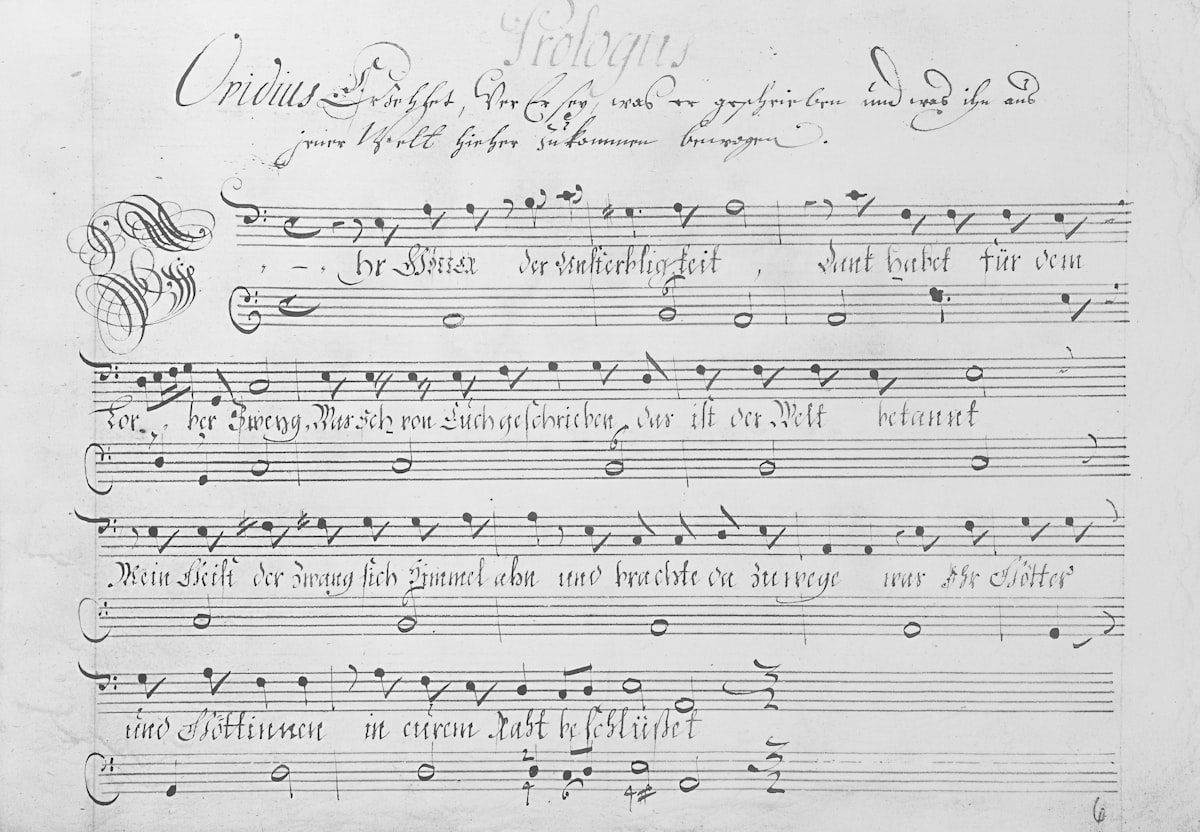 Prologus
Ovidius Erzehlet, Wer Er sey, was er geschrieben und was ihn aus
jener Welt hieher zukommen bewogen.
Ihr Götter der Unsterbligkeit, Danck habet für dem
Lor - ber Zweyg, Was Ich von Euch geschrieben, das ist der Welt bekannt
Mein Geist der zwang sich Himmel ahn und brachte da zuwege was Ihr Götter
und Göttinnen in eurem Raht beschlüßet
6